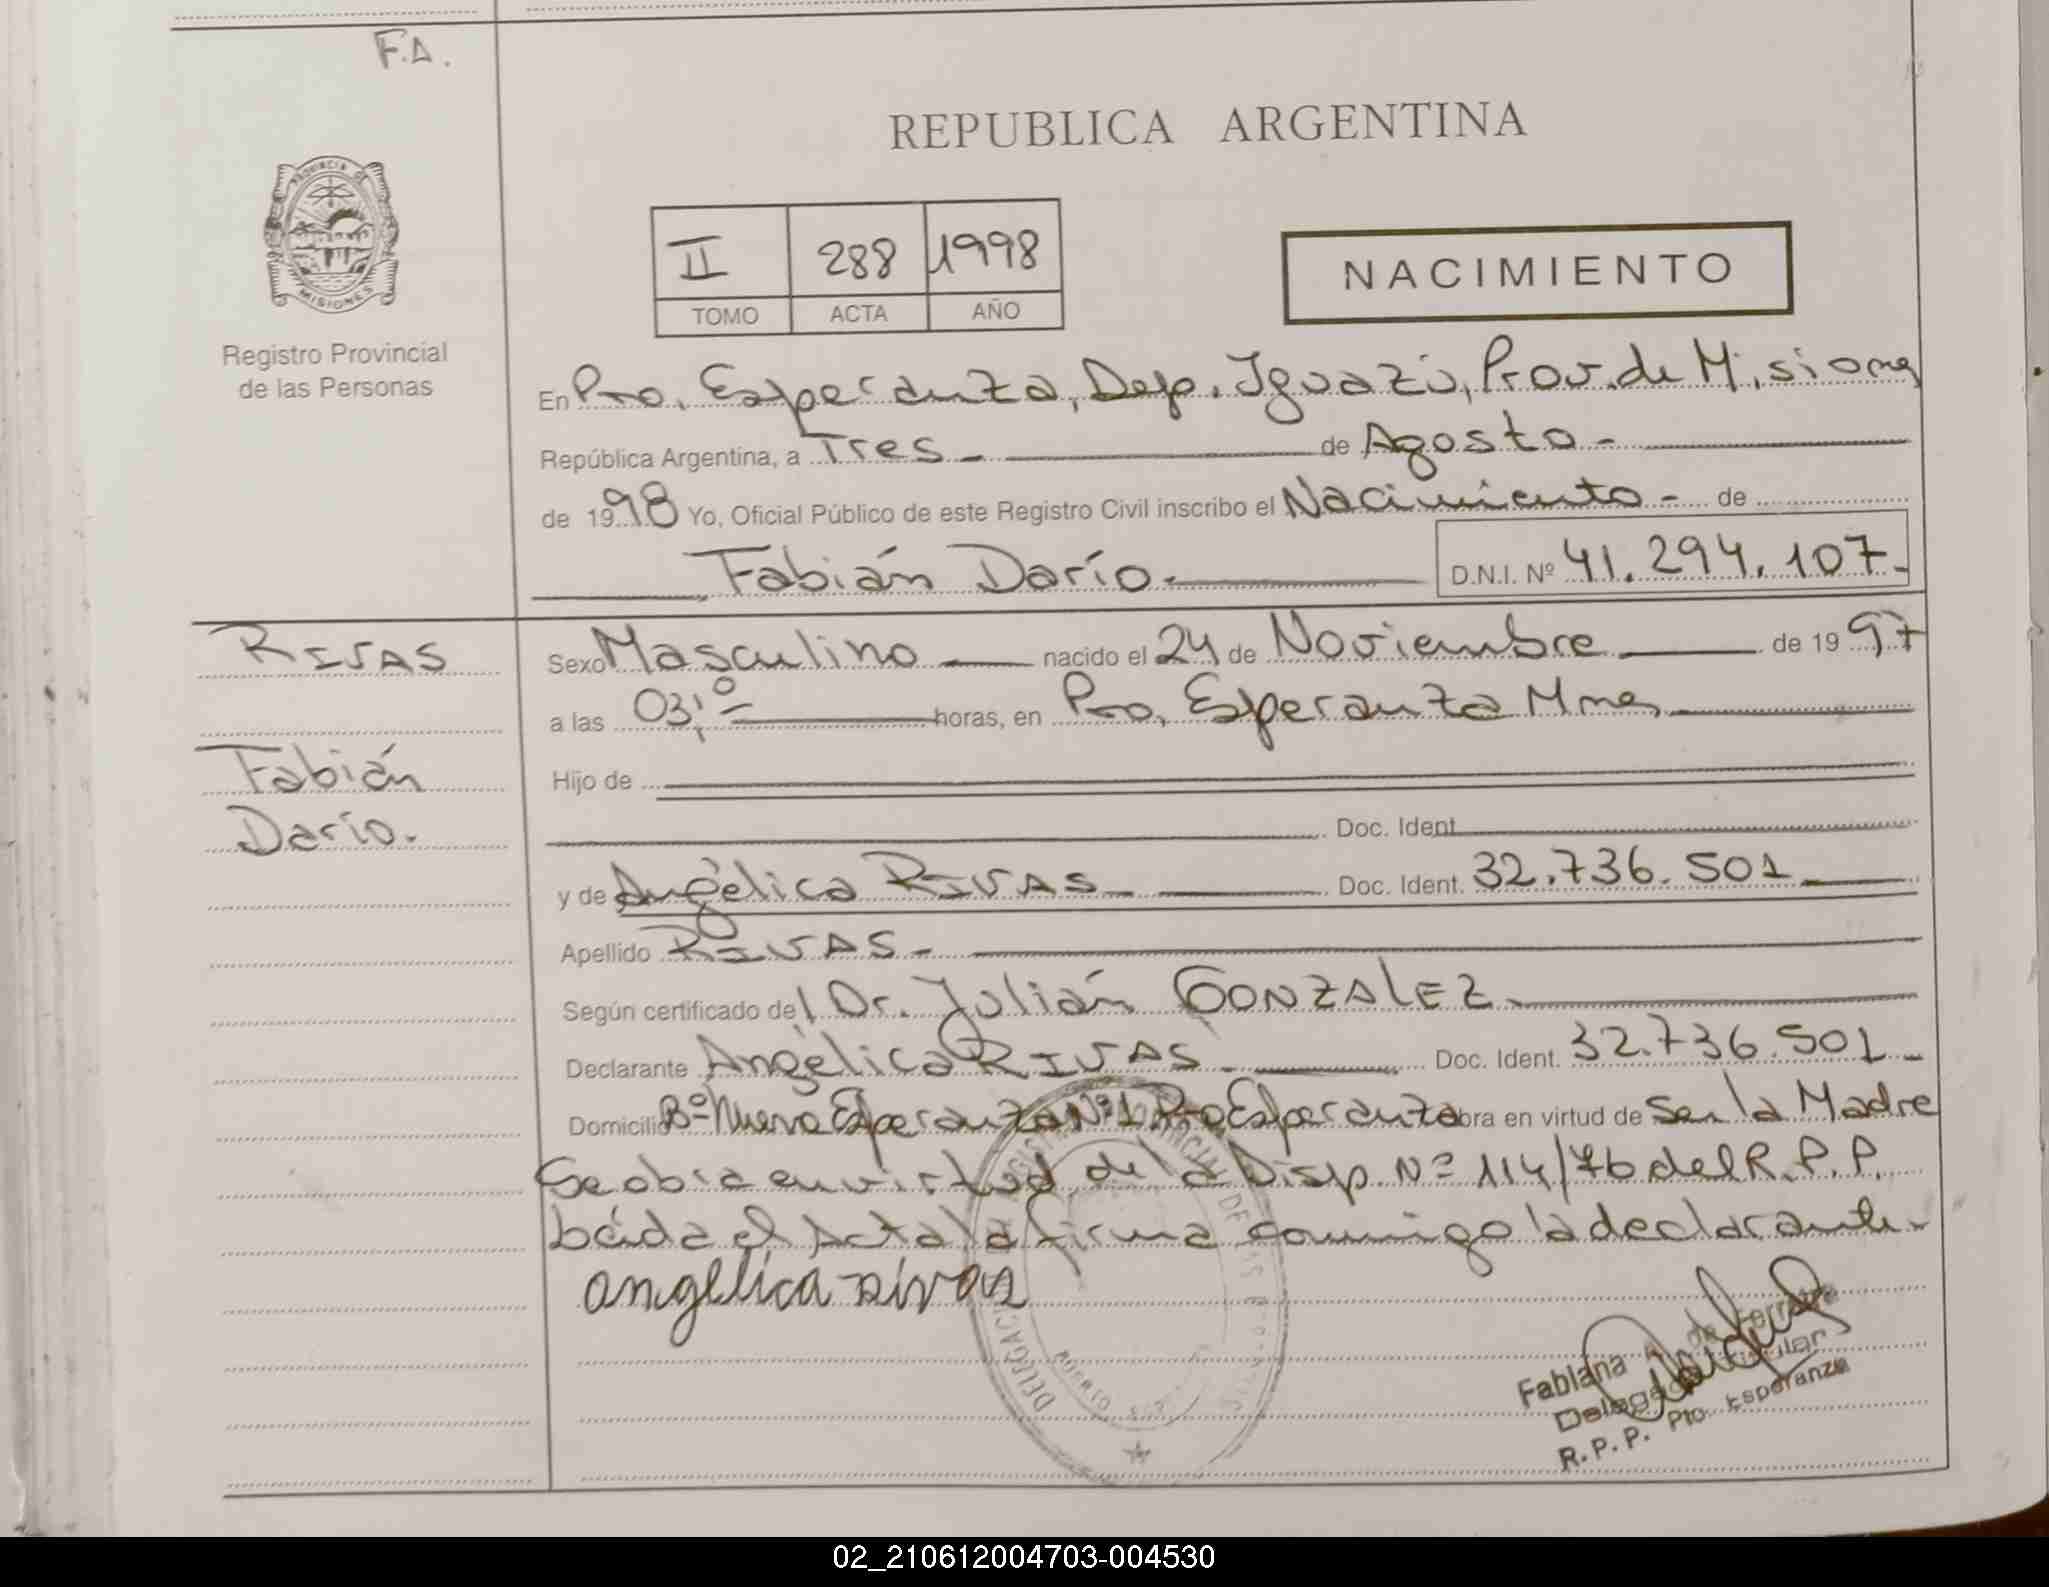 F.A.
REPUBLICA ARGENTINA
PROVINCIA DE
MISIONES
Registro Provincial
de las Personas
II 288 1998
TOMO ACTA AÑO
NACIMIENTO
En Pto. Esperanza, Dep. Iguazú, Prov. de Misiones
República Argentina, a Tres - de Agosto -
de 1998 Yo, Oficial Público de este Registro Civil inscribo el Nacimiento - de
Fabián Darío. D.N.I. Nº 41.294.107-
RIVAS
Fabián
Darío.
Sexo Masculino nacido el 24 de Noviembre de 1997
a las 03,º horas, en Pto. Esperanza Mnes
Hijo de
Doc. Ident.
y de Angélica RIVAS Doc. Ident. 32.736.501
Apellido RIVAS -
Según certificado del Dr. Julián GONZALEZ
Declarante Angélica RIVAS - Doc. Ident. 32.736.501 -
Domicilio Bº Nueva Esperanza Nº 1 Pto Esperanza obra en virtud de Ser la Madre
Se obra en virtud de la Disp. Nº 114/76 del R.P.P.
el Acta la firma conmigo la declarante -
angelica rivas
Fabiana de Ferreira
Delegada Titular
R.P.P. Pto. Esperanza
02_210612004703-004530